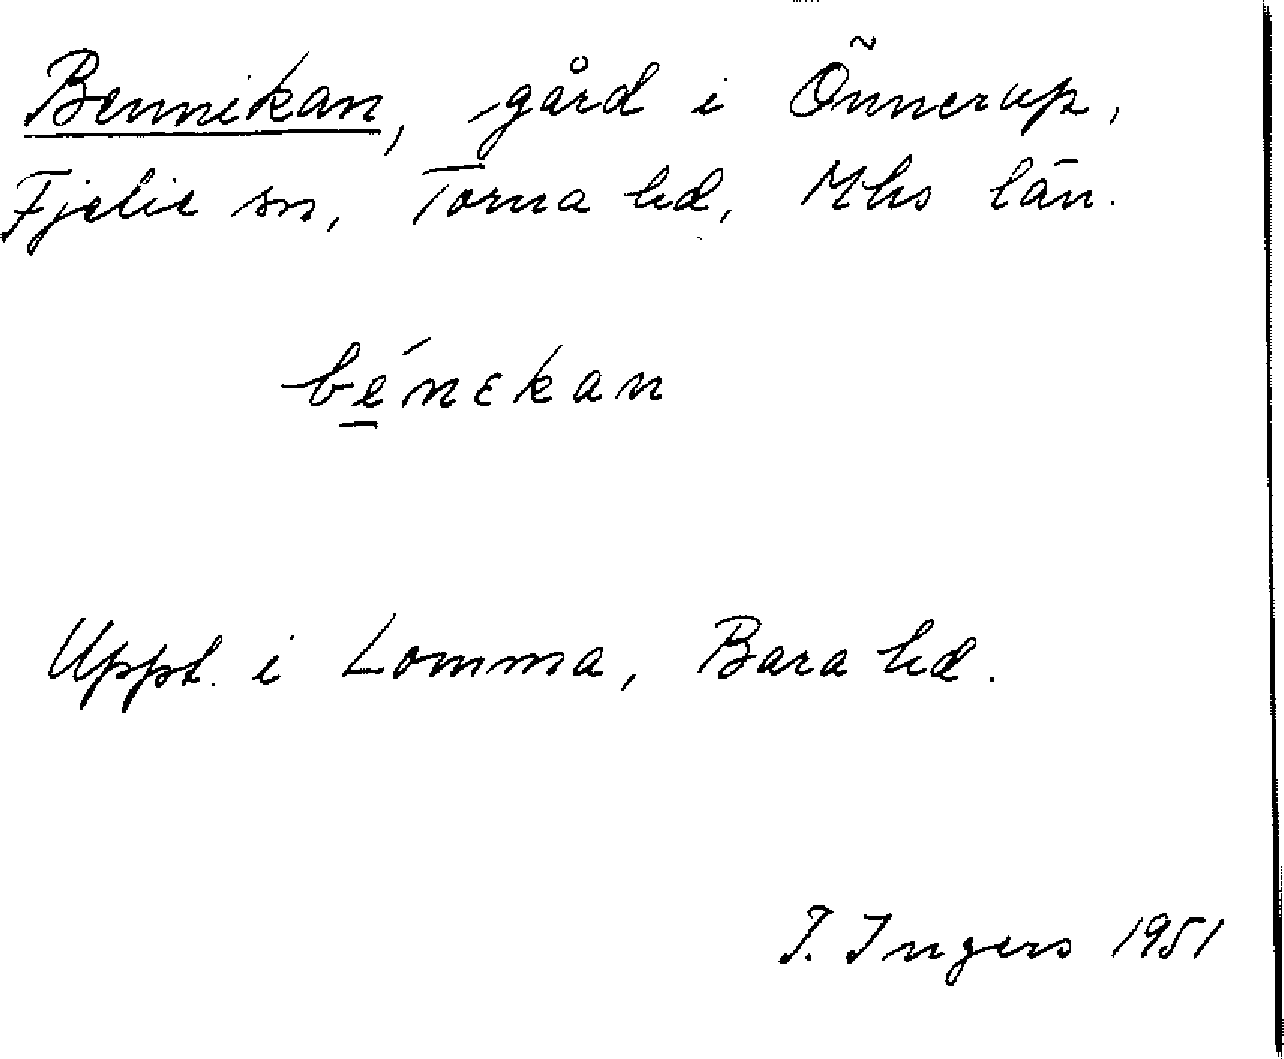 Bennikan, gård i Önnerup,
Fjelie sn, Torna hd, Mhs län.
bé̱nɛkan
Uppt. i Lomma, Bara hd.
I. Ingers 1951